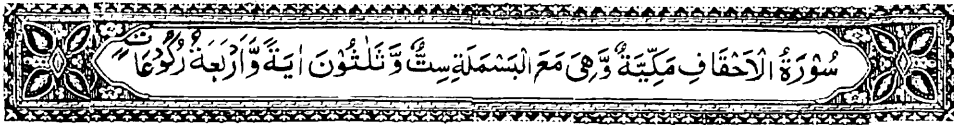 سُوْرَةُ الْاَحْقَافِ مَكِّيَّةٌ وَّهِيَ مَعَ الْبَسْمَلَةِ سِتٌّ وَّثَلٰثُوْنَ اٰيَةً وَّاَرْبَعَةُ رُكُوْعَاتٍ